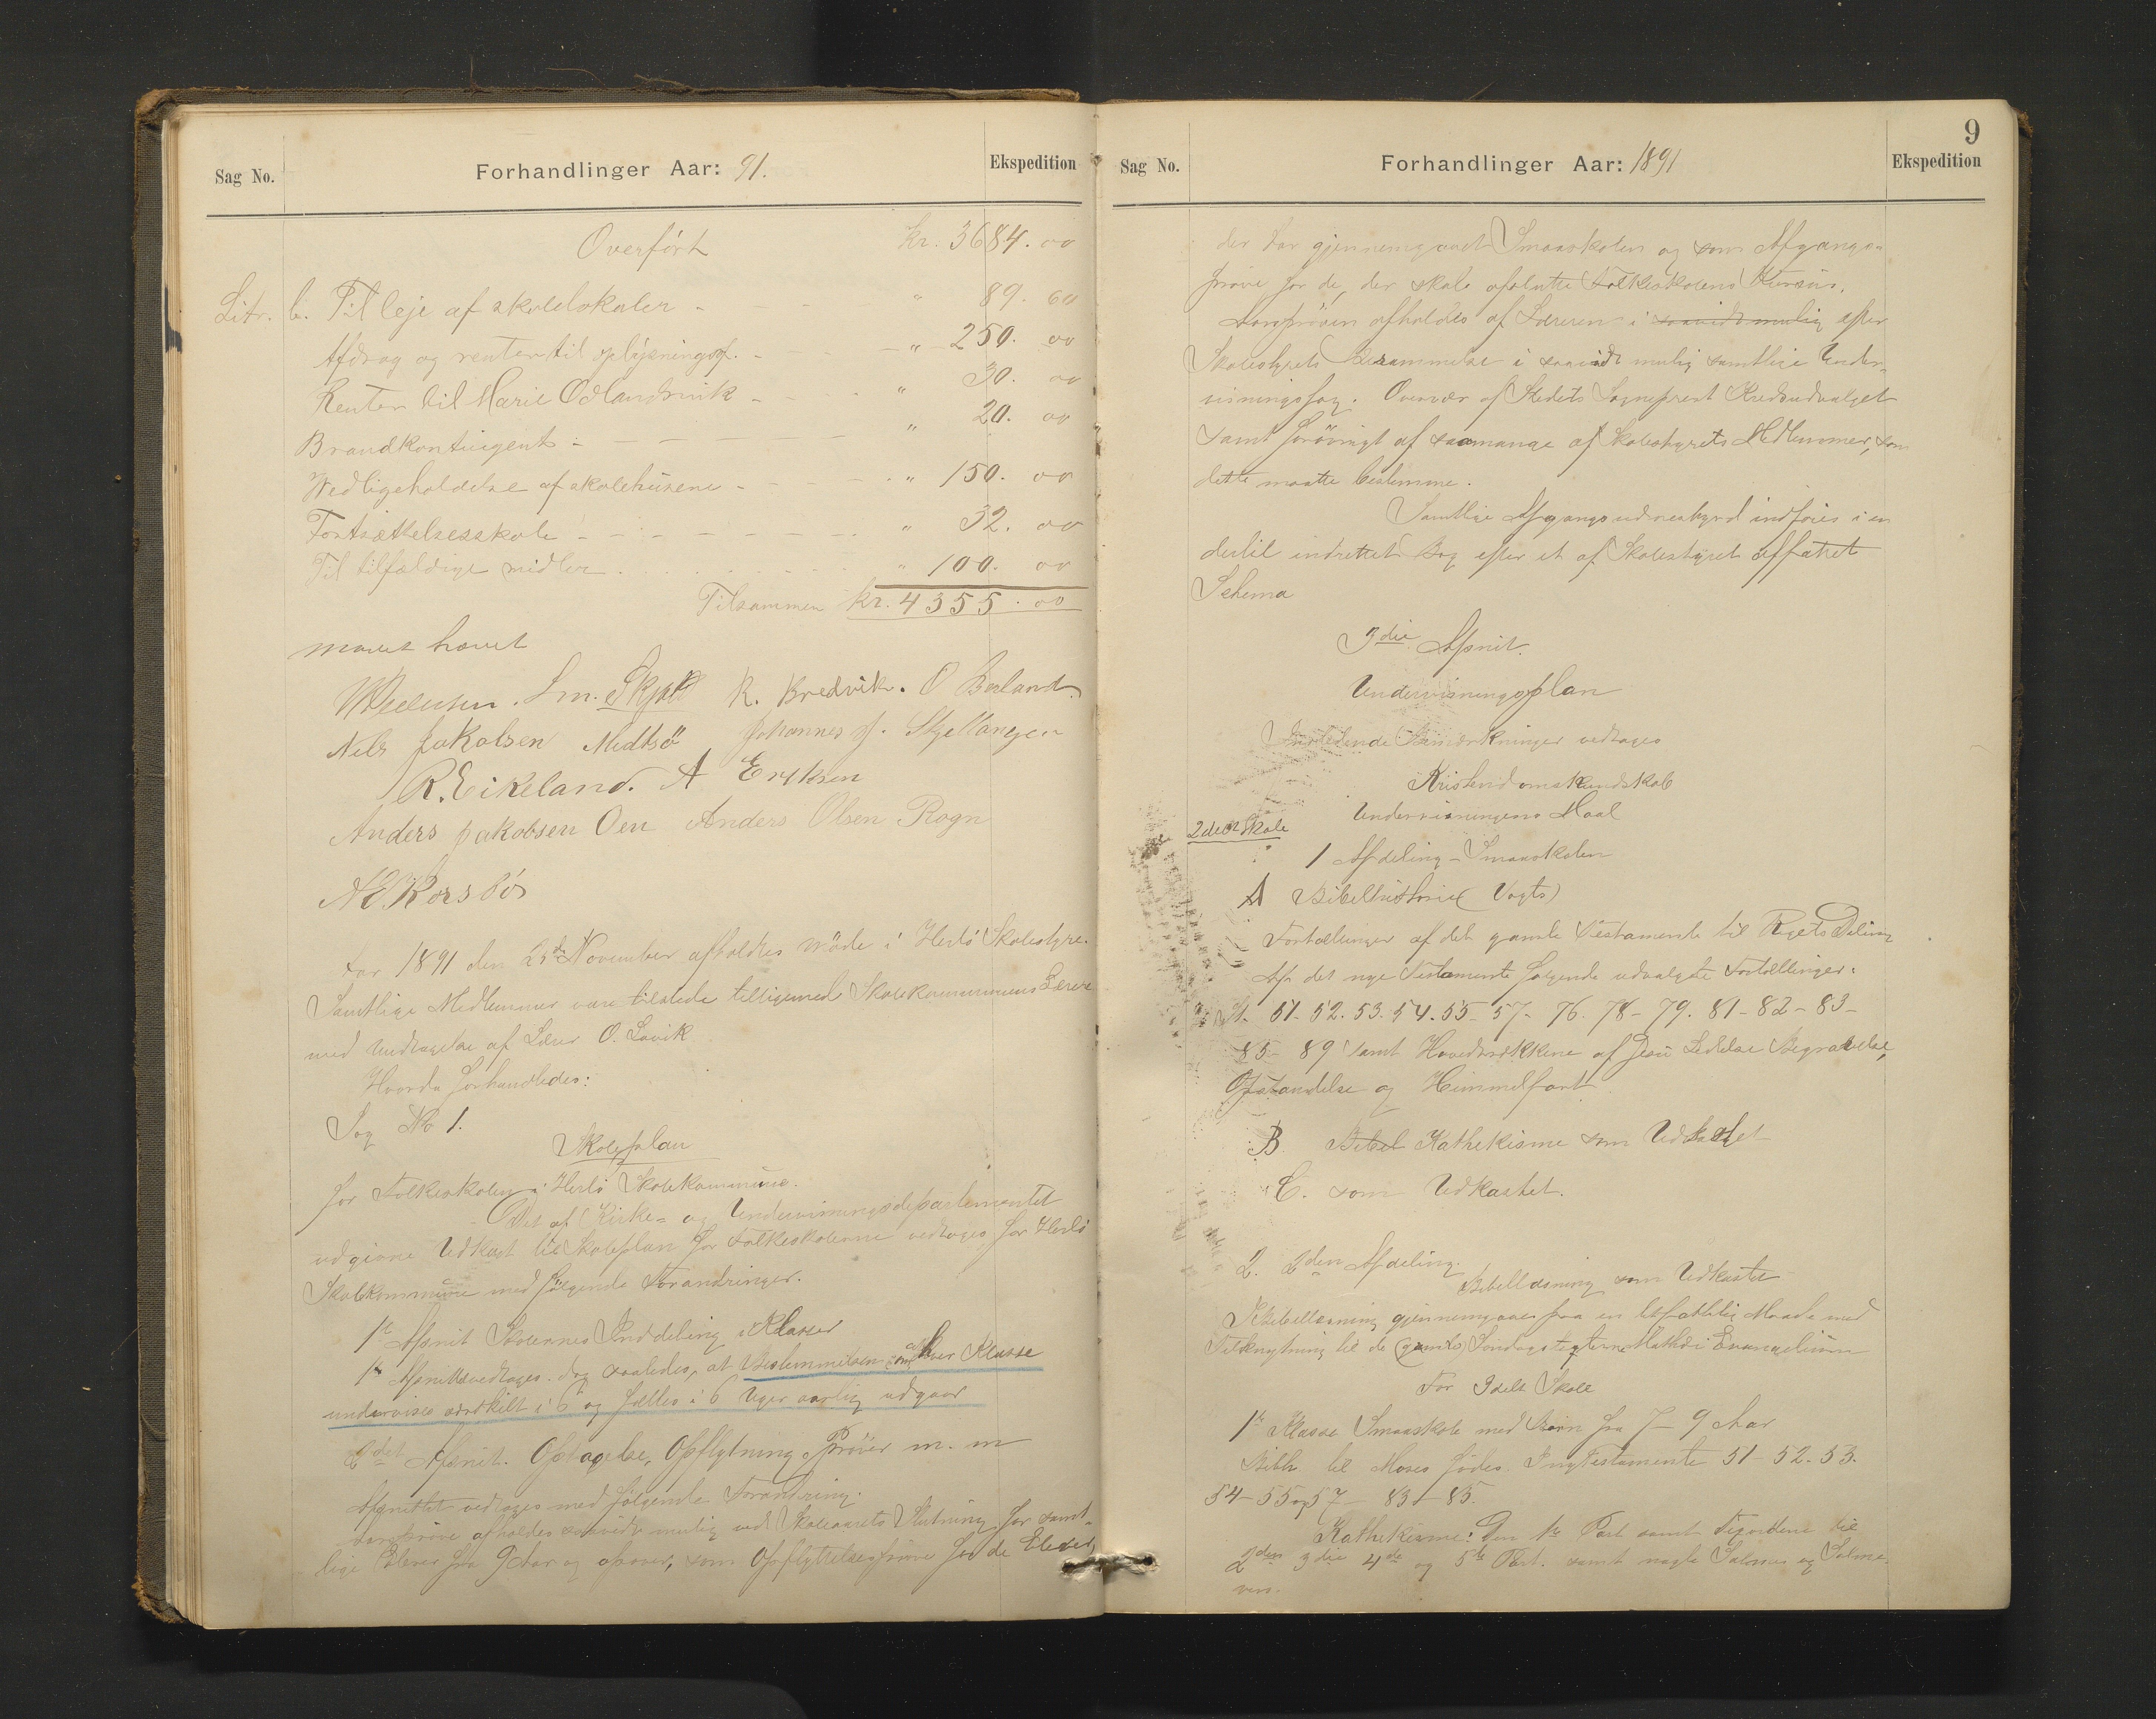 Sag No.
Forhandlinger Aar: 91.
Ekspedition
Overført kr. 3684. 00
Litr. b. Til leje af skolelokaler - " 89. 60
Afdrag og renter til oplysningsf. - " 250. 00
Renter til Marie Odlandsvik - " 30. 00
Brandkontingent - " 20. 00
Vedligeholdelse af skolehusene - " 150. 00
Fortsættelsesskole - " 32. 00
Til tilfældige midler . " 100. 00
Tilsammen kr. 4355.00
mødet hævet
Sm. R. Bredvik. O Berland
Nels Jakobsen Midtsø Johannes J. Skjellanger
R. Eikeland. A Eriksen
Anders Jakobsen Oen Anders Olsen Rogn
N E Korsbö
Aar 1891 den 25de November afholdtes møde i Herlø Skolestyre.
Samtlige Medlemmer vare tilstede tilligemed Skolekommunens Lærere
med Undtagelse af Lærer O. Lavik
Hvorda forhandledes:
Sag No 1.
Skoleplan
for Folkeskolen i Herlø Skolekommune.
Det af Kirke- og Undervisningsdepartementet
udgivne Udkast til Skoleplan for Folkeskolerne vedtages for Herlø
Skolekommune med følgende Forandringer.
1te Afsnit Skolernes Inddeling i Klasser
1te Afsnit vedtages dog saaledes, at Bestemmelsen om at hver Klasse
undervises særskilt i 6 og fælles i 6 Uger aarlig udgaar
2det Afsnit. Optagelse, Opflytning, Prøver m. m
Afsnittet vedtages med følgende Forandring.
Aarsprøve afholdes saavidt mulig ved Skoleaarets Slutning for samt-
lige Elever fra 9 Aar og opover, som Opflyttelsesprøve for de Elever,
9
Sag No.
Forhandlinger Aar: 1891
Ekspedition
der har gjennemgaaet Smaaskolen og som Afgangs-
prøve for de, der skal afslutte Folkeskolens Kursus.
Aarsprøven afholdes af Læreren i saavidt mulig efter
Skolestyrets Berammelse i saavidt mulig samtlige Under-
visningsfag. Overvær af Stedets Sogneprest Kredsudvalget
samt forøvrigt af saamange af Skolestyrets Medlemmer, som
dette maatte bestemme.
Samtlige Afgangsvidnesbyrd indføres i en
dertil indrettet Bog efter et af Skolestyret affattet
Schema
3die Afsnit.
Undervisningsplan
Indledende Bemærkninger vedtages
Kristendomskundskab
Undervisningens Maal
2delt Skole
1 Afdeling - Smaaskolen
A Bibelhistorie (Vogts)
Fortællinger af det gamle Testamente til Rigets Deling
Af det nye Testamente følgende udvalgte Fortællinger:
St. 51. 52. 53. 54. 55. 57. 76. 78 - 79. 81 - 82 - 83 -
85 - 89 samt Hovedtrækkene af Jesu Lidelse Begravelse,
Opstandelse og Himmelfart.
B Bibel Kathekisme som Udkastet
C. som Udkastet.
2. 2den Afdeling.
Bibellæsning som Udkastet
Bibellæsning gjennemgaaes paa en letfattelig Maade med
Tilknytning til de (gamle) Søndagstexterne Mathæi Evangelium
For 3delt Skole
1te Klasse Smaaskole med Børn fra 7 - 9 Aar
Bibh. til Moses fødes. I nyTestamente 51 - 52. 53.
54 - 55 og 57 - 83 - 85.
Kathekisme: Den 1te Part samt Tegordene til
2den 3die 4de og 5te Part. samt nogle Salmer og Salme
vers.